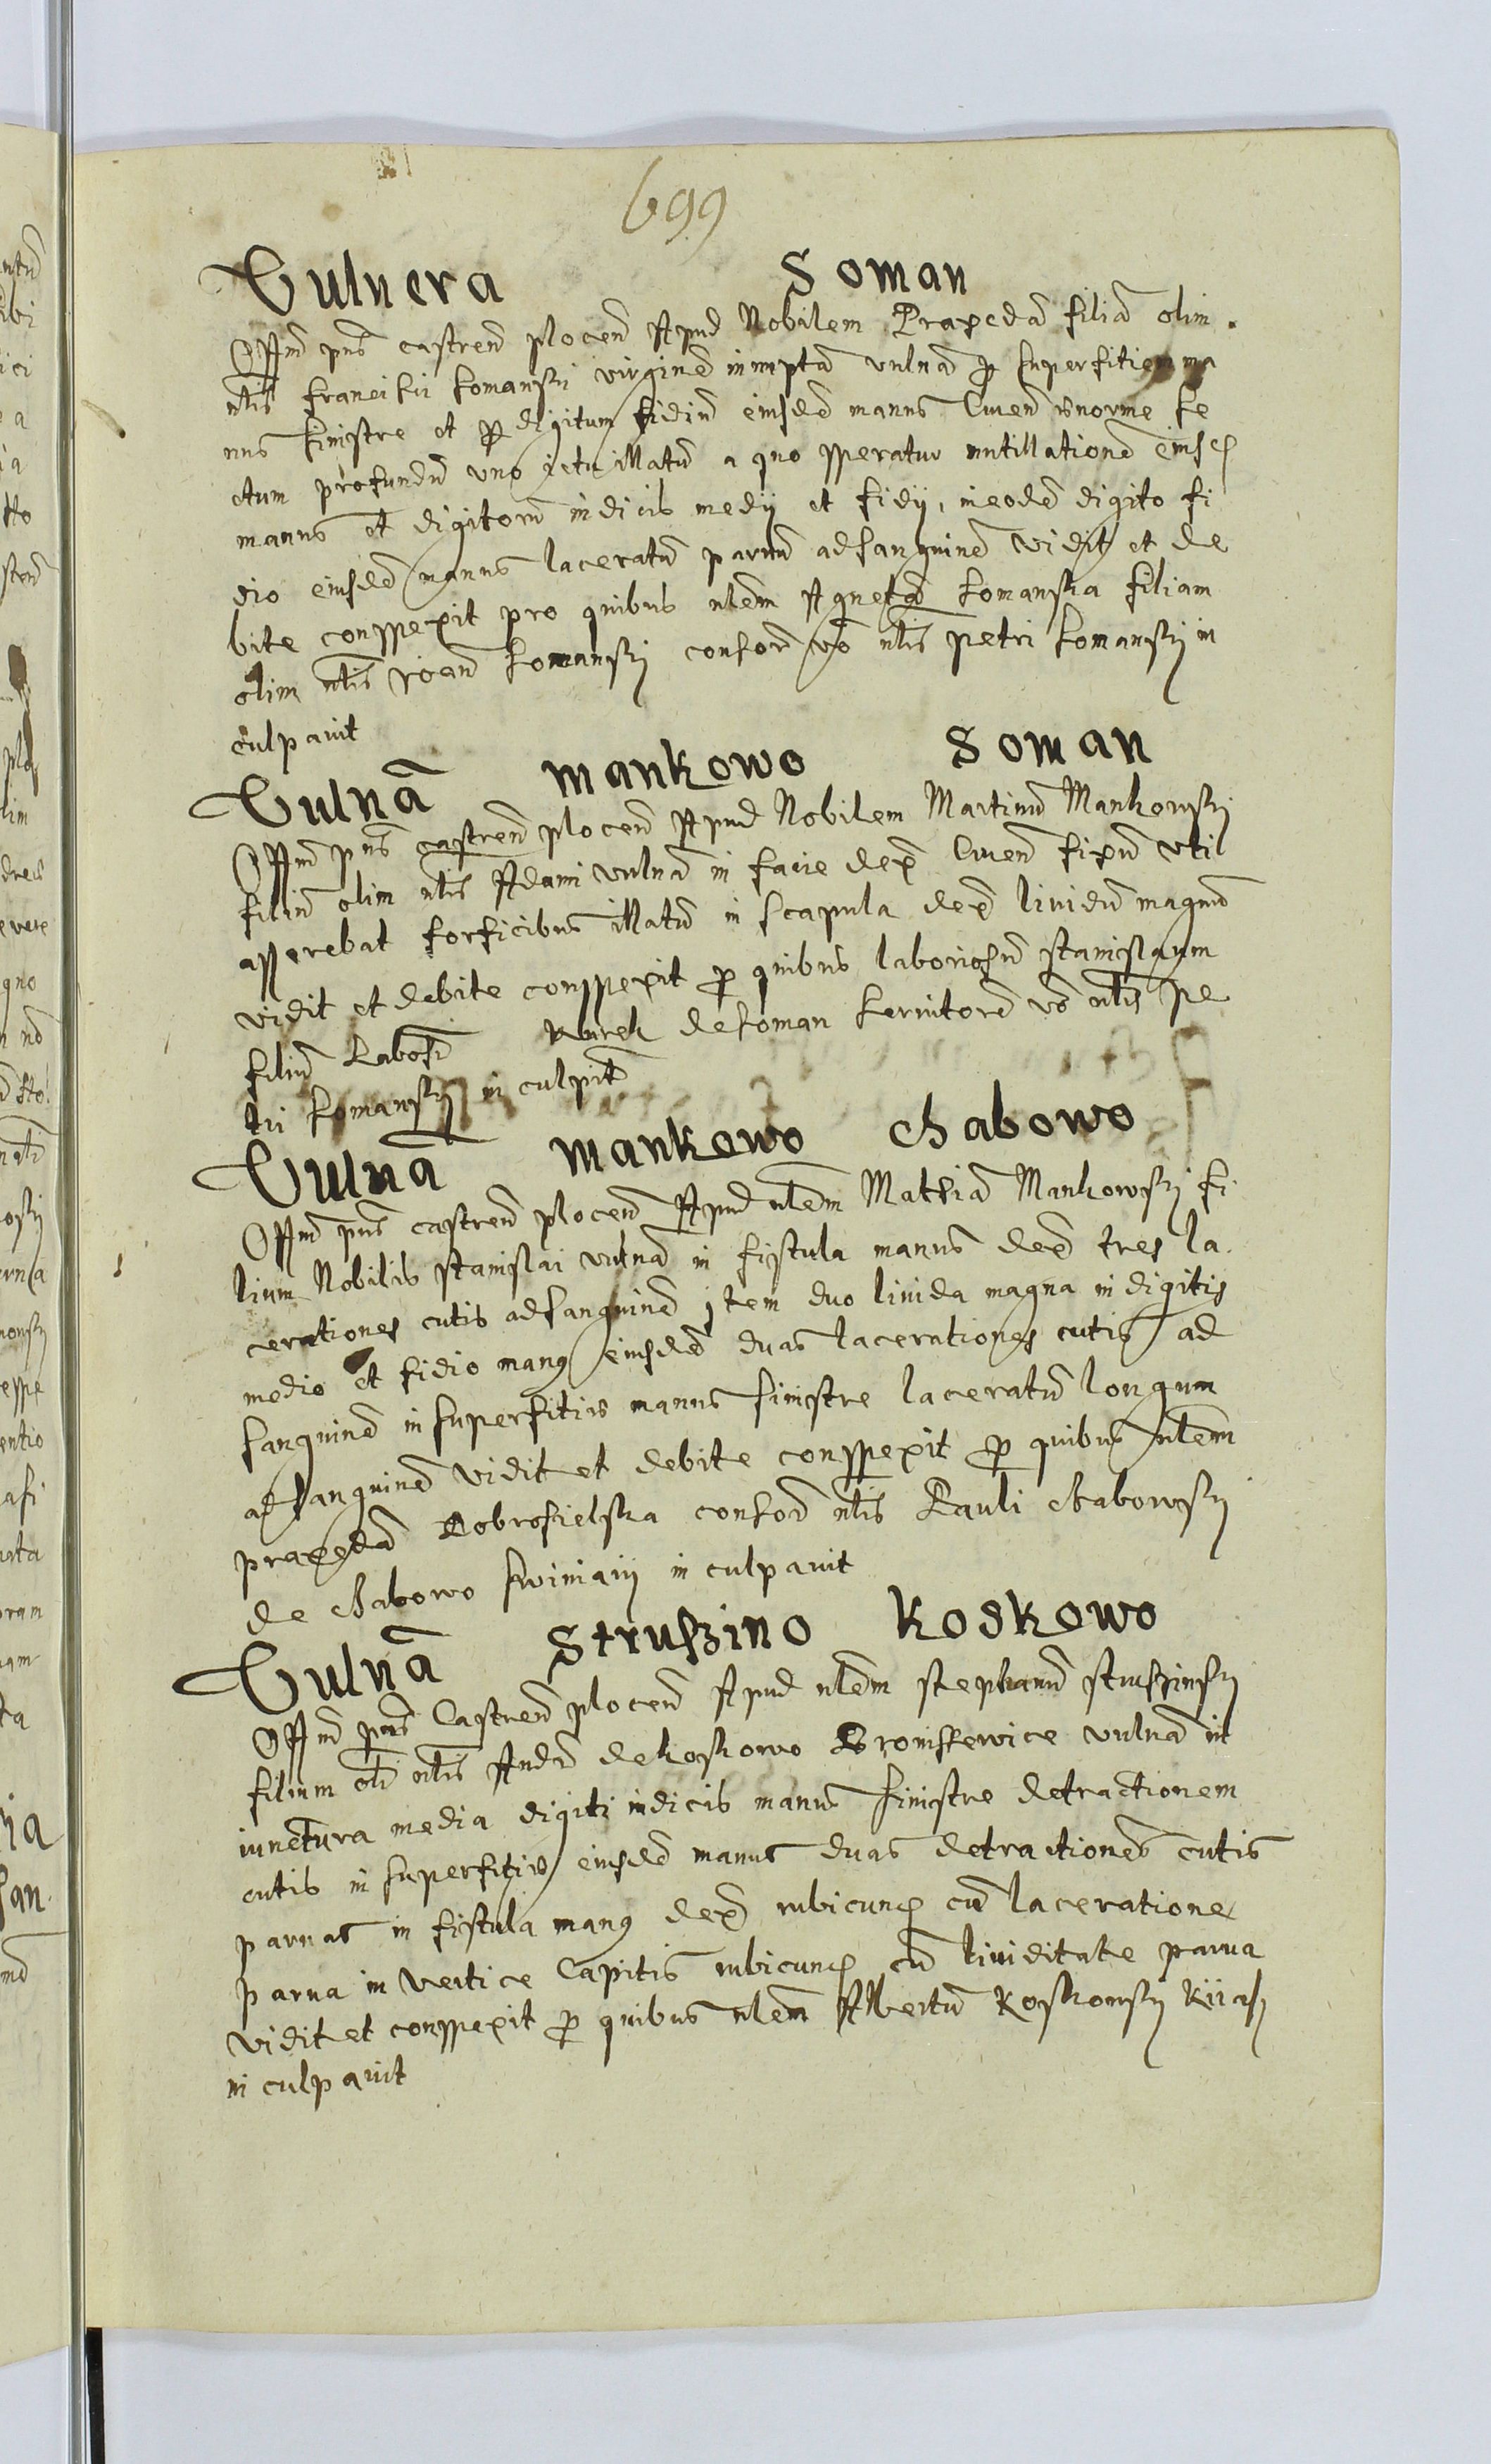 699
Vulnera Soman
Offm pns castren plocen Apud Nobilem Praxedā filiā olim
nlis Francisci Somanskj virginē innuptā vulnā p superfitiem ma
nus sinistre et p digitum fidiū eiusdē manus Cruen enorme se
ctum profundū uno ictu illatū a quo speratur mutillationē eiusd
manus et digitorū indicis medij et fidij, in eodē digito fi
dio eiusdē manus laceratū parvū ad sanguinē vidit et de
bite conspexit pro quibus nlem Agnetā Somanska filiam
olim nlis Joan Somanskj consor vō nlis Petri Somanskj in
culpavit
Vulnā Mankowo Soman
Offm pns castren plocen Apud Nobilem Martinū Mankowskj
filiū olim nlis Adami vulnā in facie dex Cruen fixū vti
asserebat forficibus illatū in scapula dex lividū magnū
vidit et debite conspexit p quibus laboriosū Stanislaum
filiū Labosi Kurek de Soman servitorē vō nlis Pe
tri Somanskj in culpit
Vulnā Mankowo Chabowo
Offm pns castren plocen Apud nlem Mathiā Mankowskj fi
lium Nobilis Stanislai vulnā in fistula manus dex tres la
cerationes cutis ad sanguinē jtem duo livida magna in digitis
medio et fidio man9 eiusdē duas lacerationes cutis ad
sanguinē in superfitie manus sinistre laceratū longum
ad sanguinē vidit et debite conspexit p quibus nlem
praxedā Dobrosielska consor nlis Pauli Chabowskj
de Chabowo Swiniarij in culpavit
Vulnā Struszino Koskowo
Offm pns Castren plocen Apud nlem Stephanū Struszinskj
filium oli nlis Andr de Koskowo Broniskewice vulnā in
iunctura media digiti indicis manus sinistre detractionem
cutis in superfitie eiusdē manus duas detractiones cutis
parvas in fistula man9 dex rubicund cū laceratione
parva in vertice Capitis rubicund cū lividitate parva
vidit et conspexit p quibus nlem Albertū Koskowskj
in culpavit